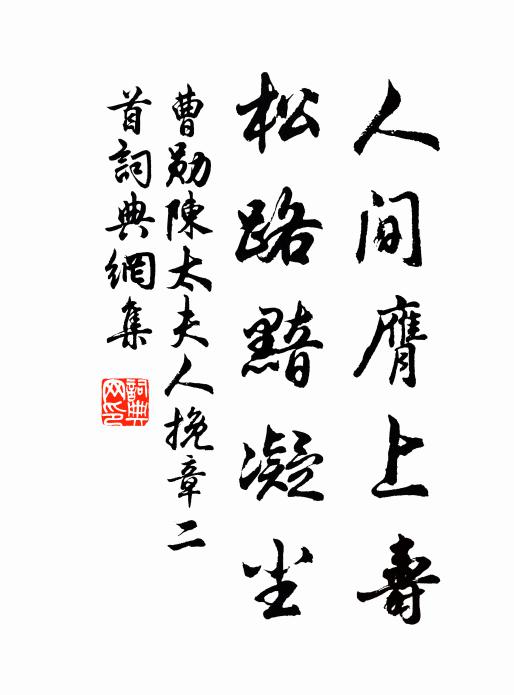 人间膺上壽
松路黯凝尘
曹勋陳太夫人挽章二
首詞典網集
詞典
网印